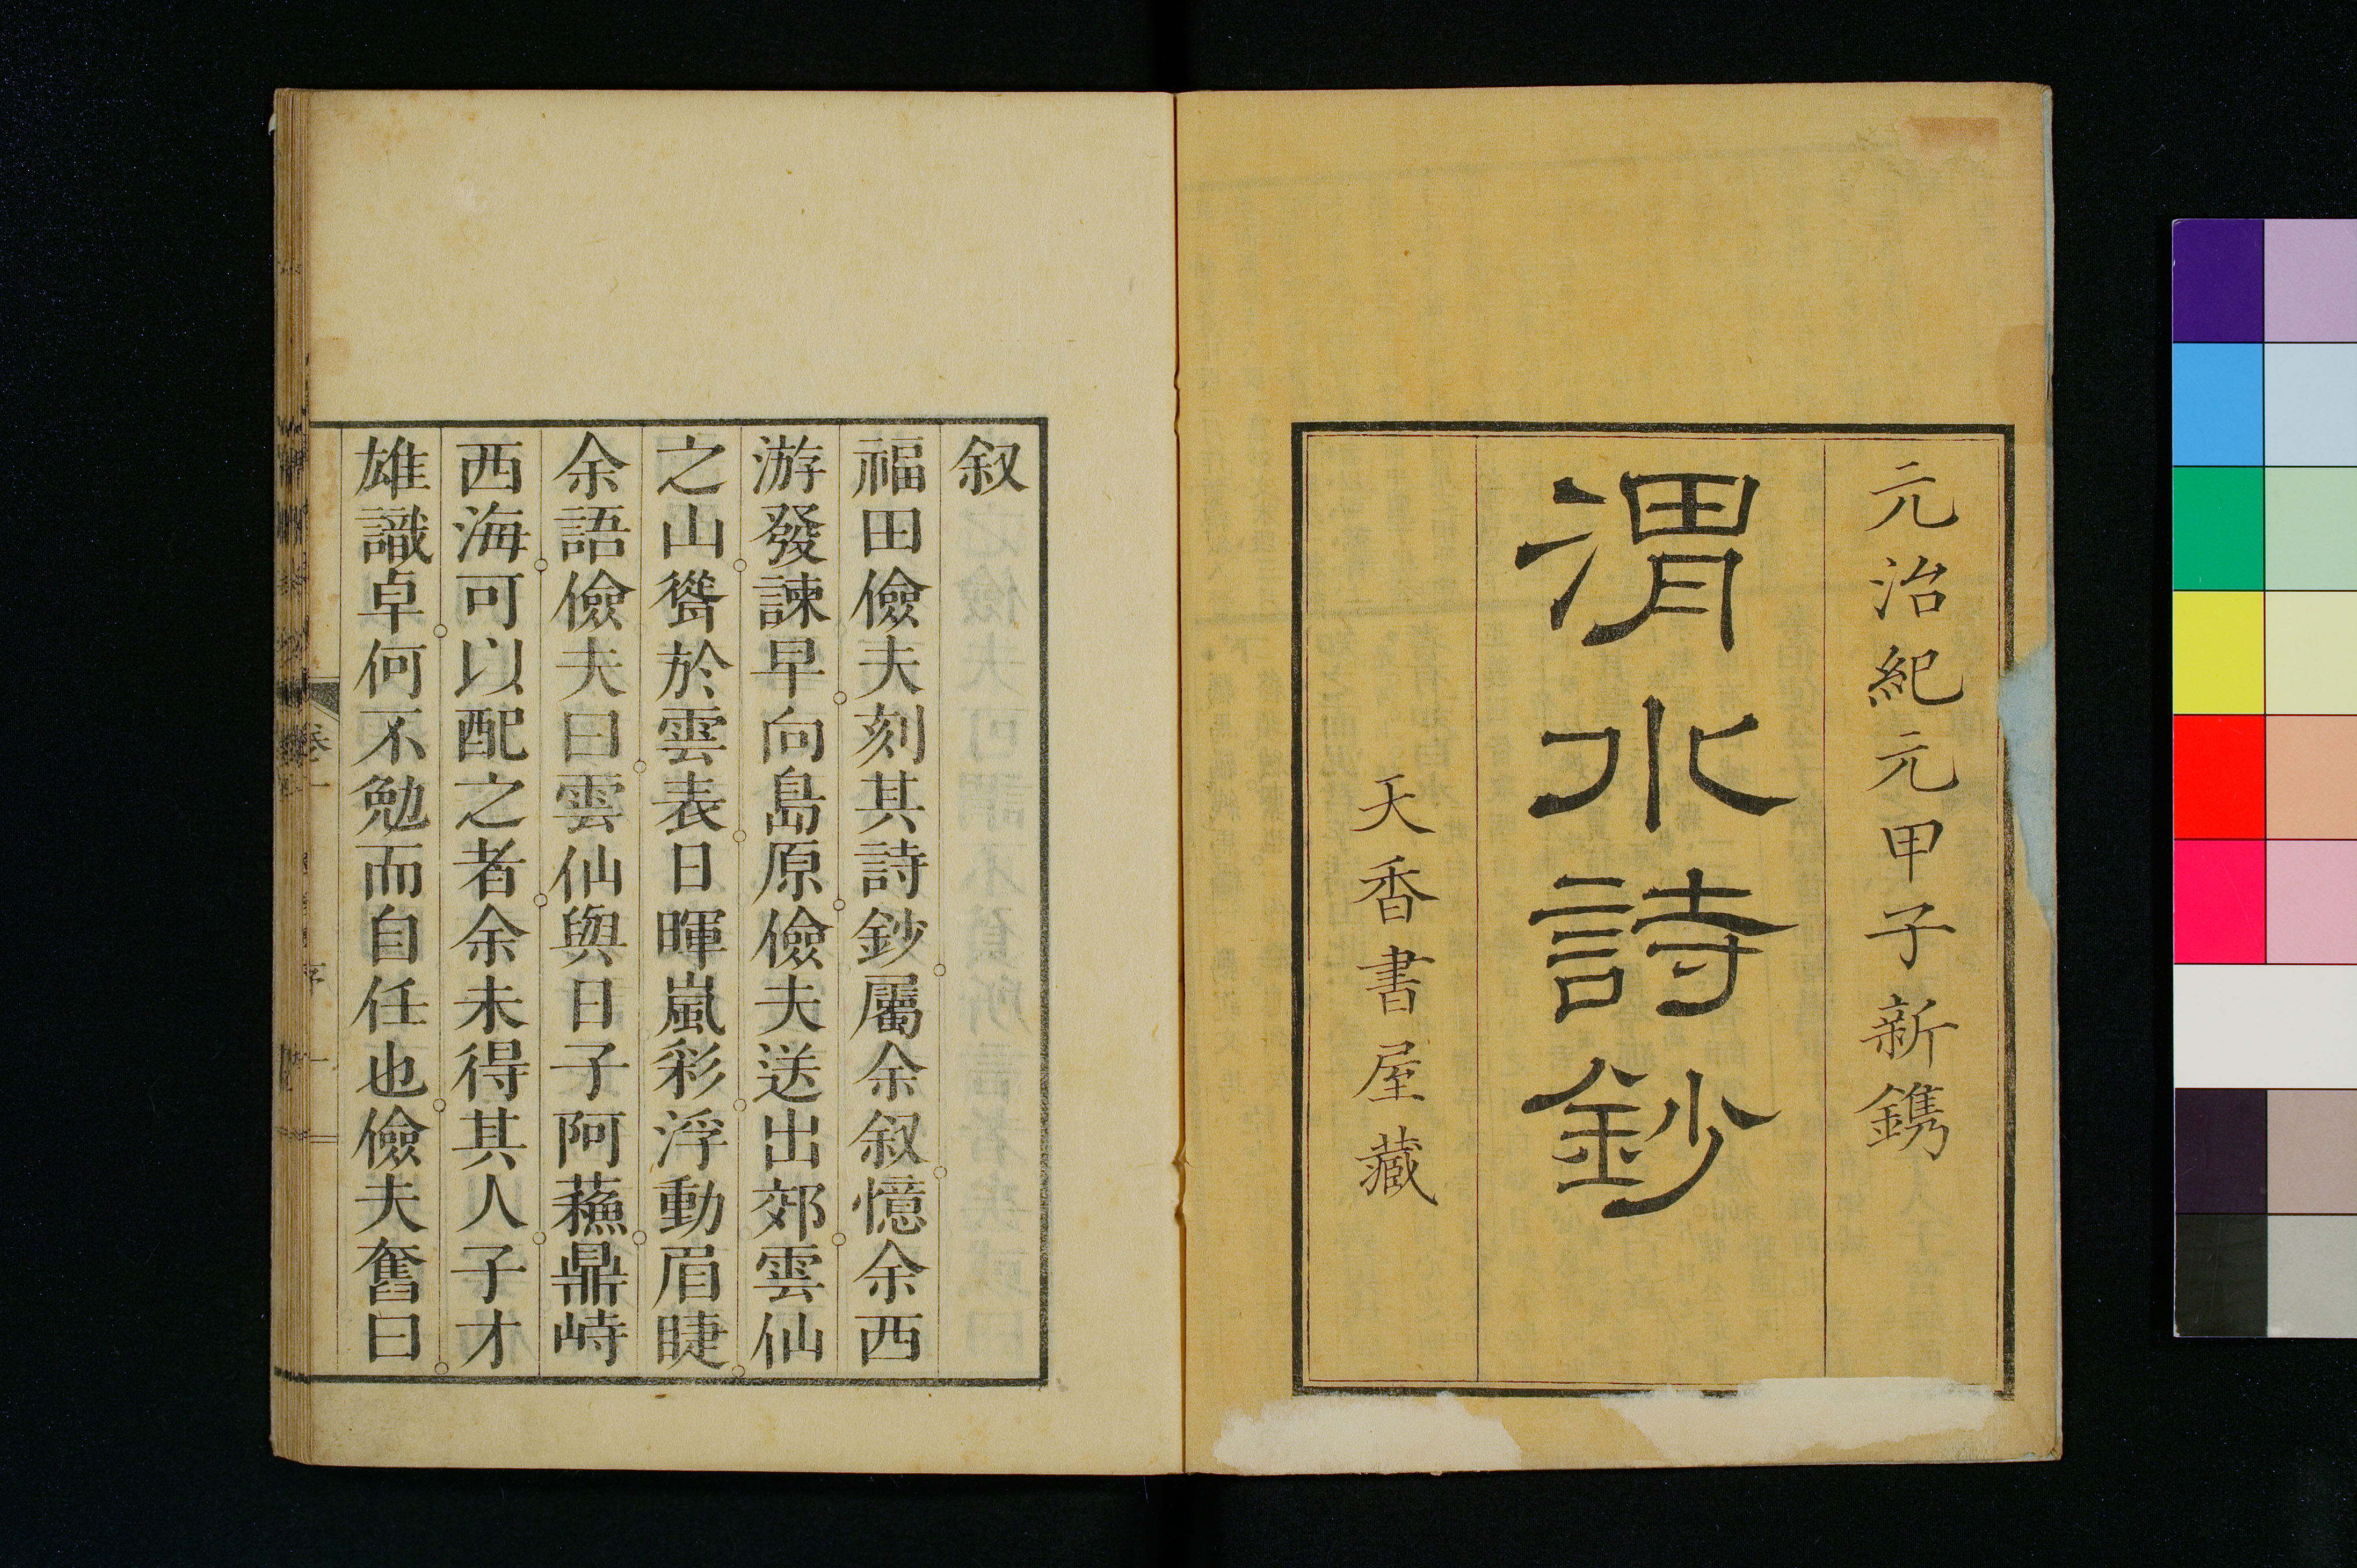 元治紀元甲子新鐫
渭水詩鈔
天香書屋藏
叙
福田儉夫刻其詩鈔屬余叙憶余西
游發諫早向島原儉夫送出郊雲仙
之山聳於雲表日暉嵐彩浮動眉睫
余語儉夫曰雲仙與日子阿蘓鼎峙
西海可以配之者余未得其人子才
雄識卓何不勉而自任也儉夫奮曰